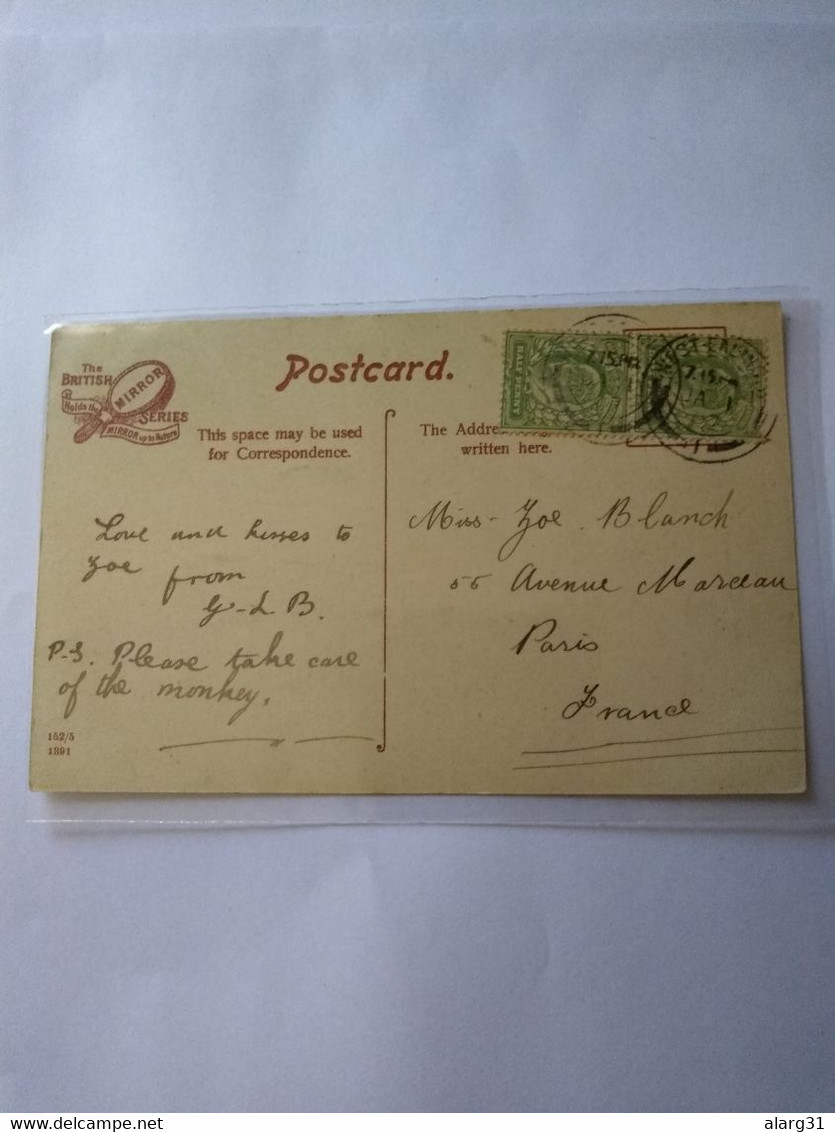 The
BRITISH
MIRROR
SERIES
Holds the
MIRROR up to Nature
Postcard.
This space may be used
for Correspondence.
The Addre
written here.
WEST-EALING
7.15 PM
JA 1
Love and kisses to
Zoe from
G-L B.
P-S. Please take care
of the monkey.
Miss- Zoe Blanch
55 Avenue Marceau
Paris
France
152/5
1391
delcampe.net
alarg31